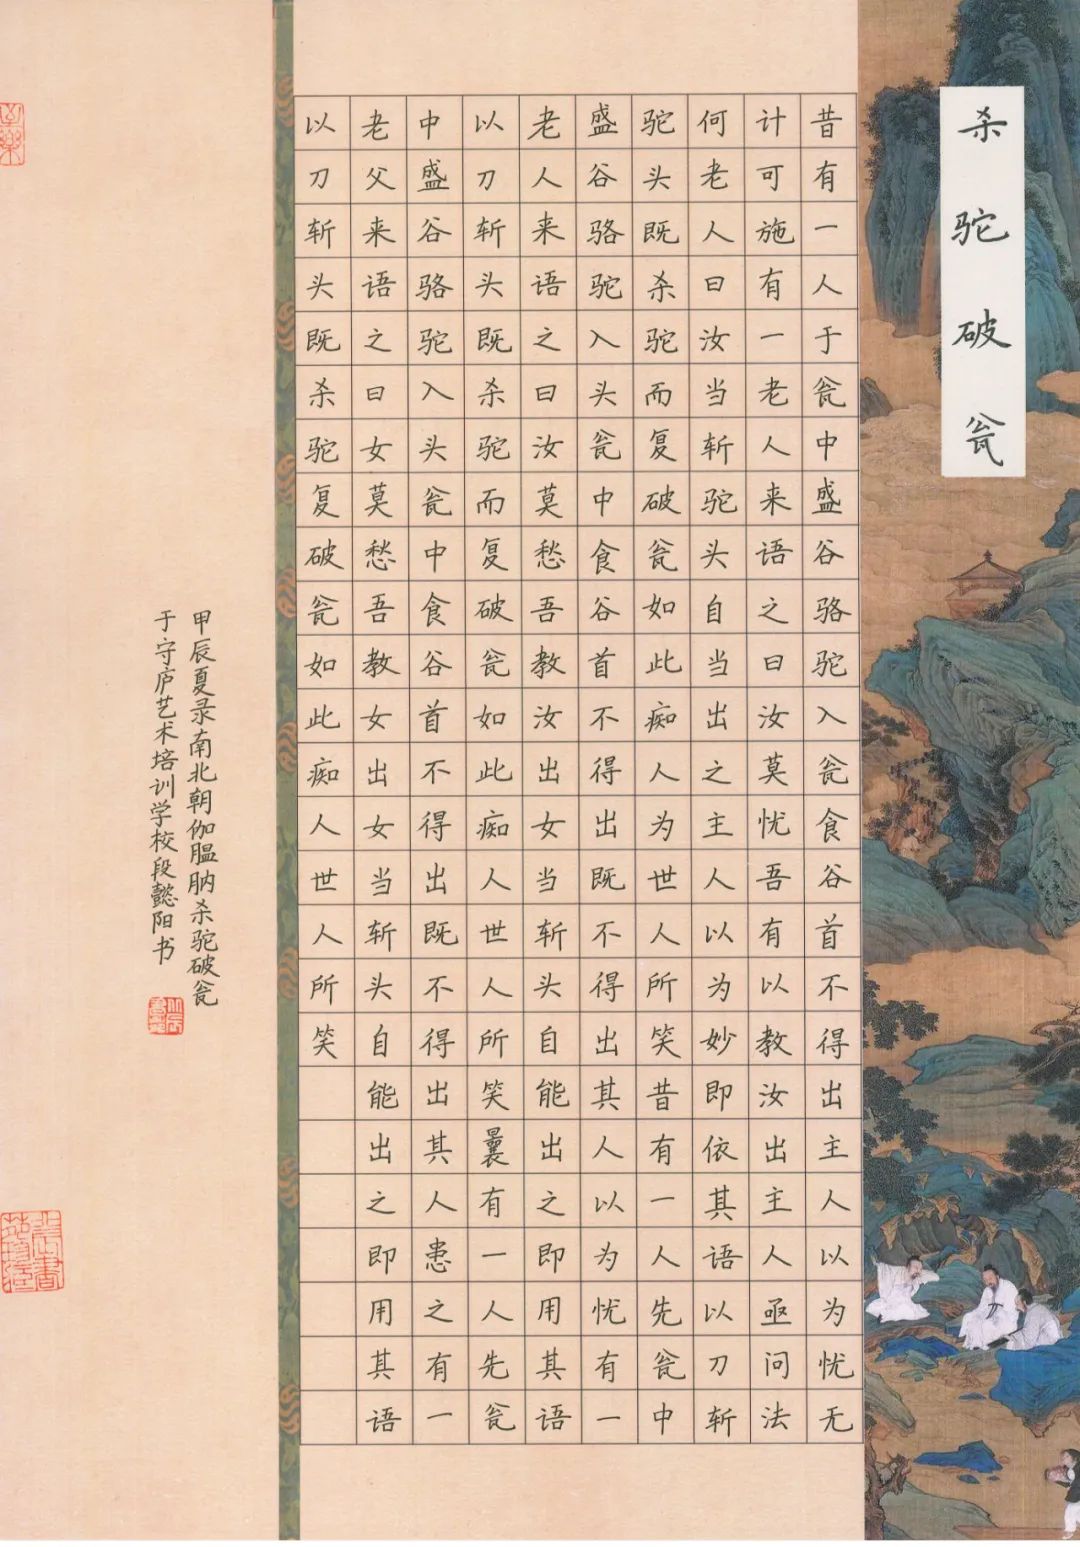 杀驼破瓮
昔有一人于瓮中盛谷骆驼入瓮食谷首不得出主人以为忧无
计可施有一老人来语之曰汝莫忧吾有以教汝出主人亟问法
何老人曰汝当斩驼头自当出之主人以为妙即依其语以刀斩
驼头既杀驼而复破瓮如此痴人为世人所笑昔有一人先瓮中
盛谷骆驼入头瓮中食谷首不得出既不得出其人以为忧有一
老人来语之曰汝莫愁吾教汝出女当斩头自能出之即用其语
以刀斩头既杀驼而复破瓮如此痴人世人所笑曩有一人先瓮
中盛谷骆驼入头瓮中食谷首不得出既不得出其人患之有一
老父来语之曰女莫愁吾教女出女当斩头自能出之即用其语
以刀斩头既杀驼复破瓮如此痴人世人所笑
甲辰夏录南北朝伽腽肭杀驼破瓮
于守庐艺术培训学校段懿阳书